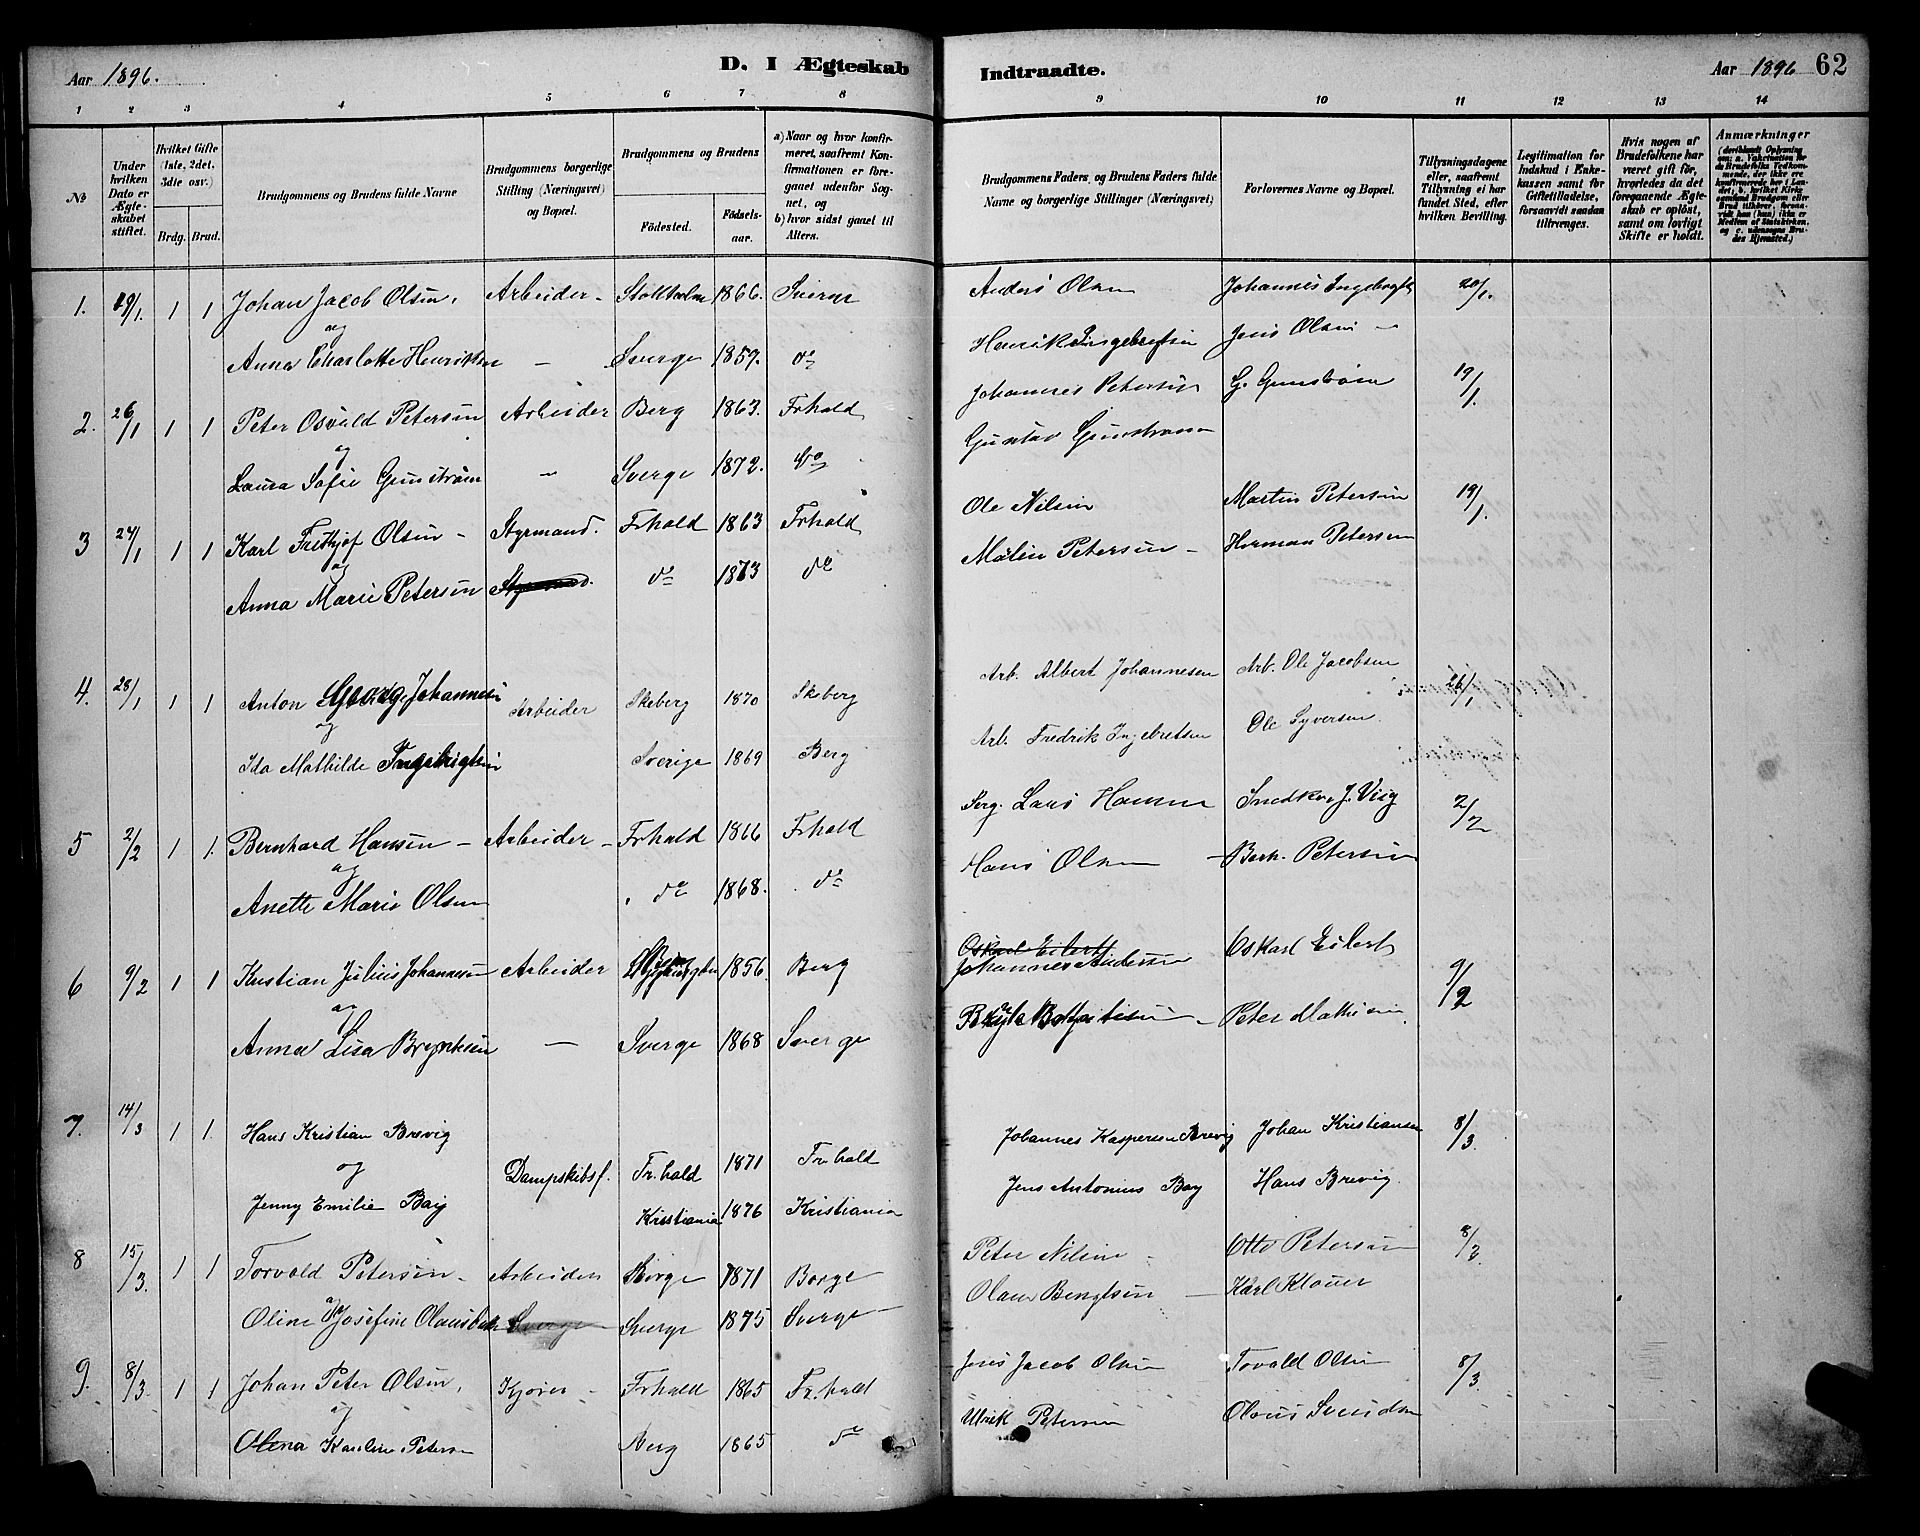 Aar 1896. D. I Ægteskab
Indtraadte. Aar 1896 62
1 2 3 4 5 6 7 8
9 10 11 12 13 14
№
Under hvilken Dato er Ægteskabet stiftet.
Hvilket Gifte (1ste, 2det, 3die osv.)
Brdg. Brud.
Brudgommens og Brudens fulde Navne
Brudgommens borgerlige Stilling (Næringsvei) og Bopæl.
Brudgommens og Brudens
Fødested.
Fødselsaar.
a) Naar og hvor konfirmeret, saafremt Konfirmationen er foregaaet udenfor Sognet, og
b) hvor sidst gaaet til Alters.
Brudgommens Faders, og Brudens Faders fulde Navne og borgerlige Stillinger (Næringsvei)
Forlovernes Navne og Bopæl.
Tillysningsdagene eller, saafremt Tillysning ei har fundet Sted, efter hvilken Bevilling.
Legitimation for Indskud i Enkekassen samt for Giftetilladelse, forsaavidt saadan tiltrænges.
Hvis nogen af Brudefolkene har været gift før, hvorledes da det foregaaende Ægteskab er opløst, samt om lovligt Skifte er holdt.
Anmærkninger
1. 19/1. 1 1 Johan Jacob Olsen, Arbeider - Stokholm 1866. Sverge Anders Olsen Johannes Ingebregts 20/1.
og
Anna Charlotte Henriksen — Sverge 1859. do Henrik Ingebretsen Jens Olsen —
2. 26/1 1 1 Peter Osvald Petersen Arbeider Berg 1863. Frhald Johannes Petersen G. Gunstrøm 19/1.
og
Laura Sofie Gunstrøm — Sverge 1872. do Gustav Gunstrøm
3 27/1 1 1 Karl Fridthjof Olsen - Styrmand. Frhald 1863 Frhald Ole Nilsen Martin Petersen 19/1.
og
Anna Marie Petersen Styrmand. do 1873 do Malin Petersen - Herman Petersen
4. 28/1 1 1 Anton Georg Johannesen Arbeider Skeberg 1870 Skeberg Arb. Albert Johannesen Arb. Ole Jacobsen 26/1
og
Ida Mathilde Ingebrigtsen Sverige 1869 Berg Arb. Fredrik Ingebretsen Ole Syversen
5 2/2 1 1. Bernhard Hansen — Arbeider - Frhald 1866 Frhald Serg. Lars Hansen Snedker J. Visg 2/2
og
Anette Marie Olsen do 1868. do Hans Olsen — Berh. Petersen
6 9/2 1 1 Kristian Julius Johannesen Arbeider 1856 Berg Oskarl Eilert Johannes Andersen Oskarl Eilert 9/2
og
Anna Lisa Brynksen — Sverge 1868 Sverge Peter Mathisen
7. 14/3 1 1. Hans Kristian Brevig Dampskibsf. Fr.hald 1871 Fr.hald Johannes Kaspersen Brevig Johan Kristiansen 8/3
og
Jenny Emilie Bay Kristiania 1876 Kristiania Jens Antonius Bay Hans Brevig.
8 15/3. 1 1 Torvald Petersen - Arbeider Borge 1871 Borge Peter Nilsen - Otto Petersen 8/3
og
Oline Josefine Olausdatter Sverge Sverge 1875 Sverge Olaus Bengtsen — Karl Klouer
9. 8/3. 1 1 Johan Peter Olsen, Kjører - Frhald 1865 Fr.hald Jens Jacob Olsen Tovald Olsen 8/3.
og
Olena Karoline Petersen Berg 1865 do Ulrik Petersen Olaus Svendsen